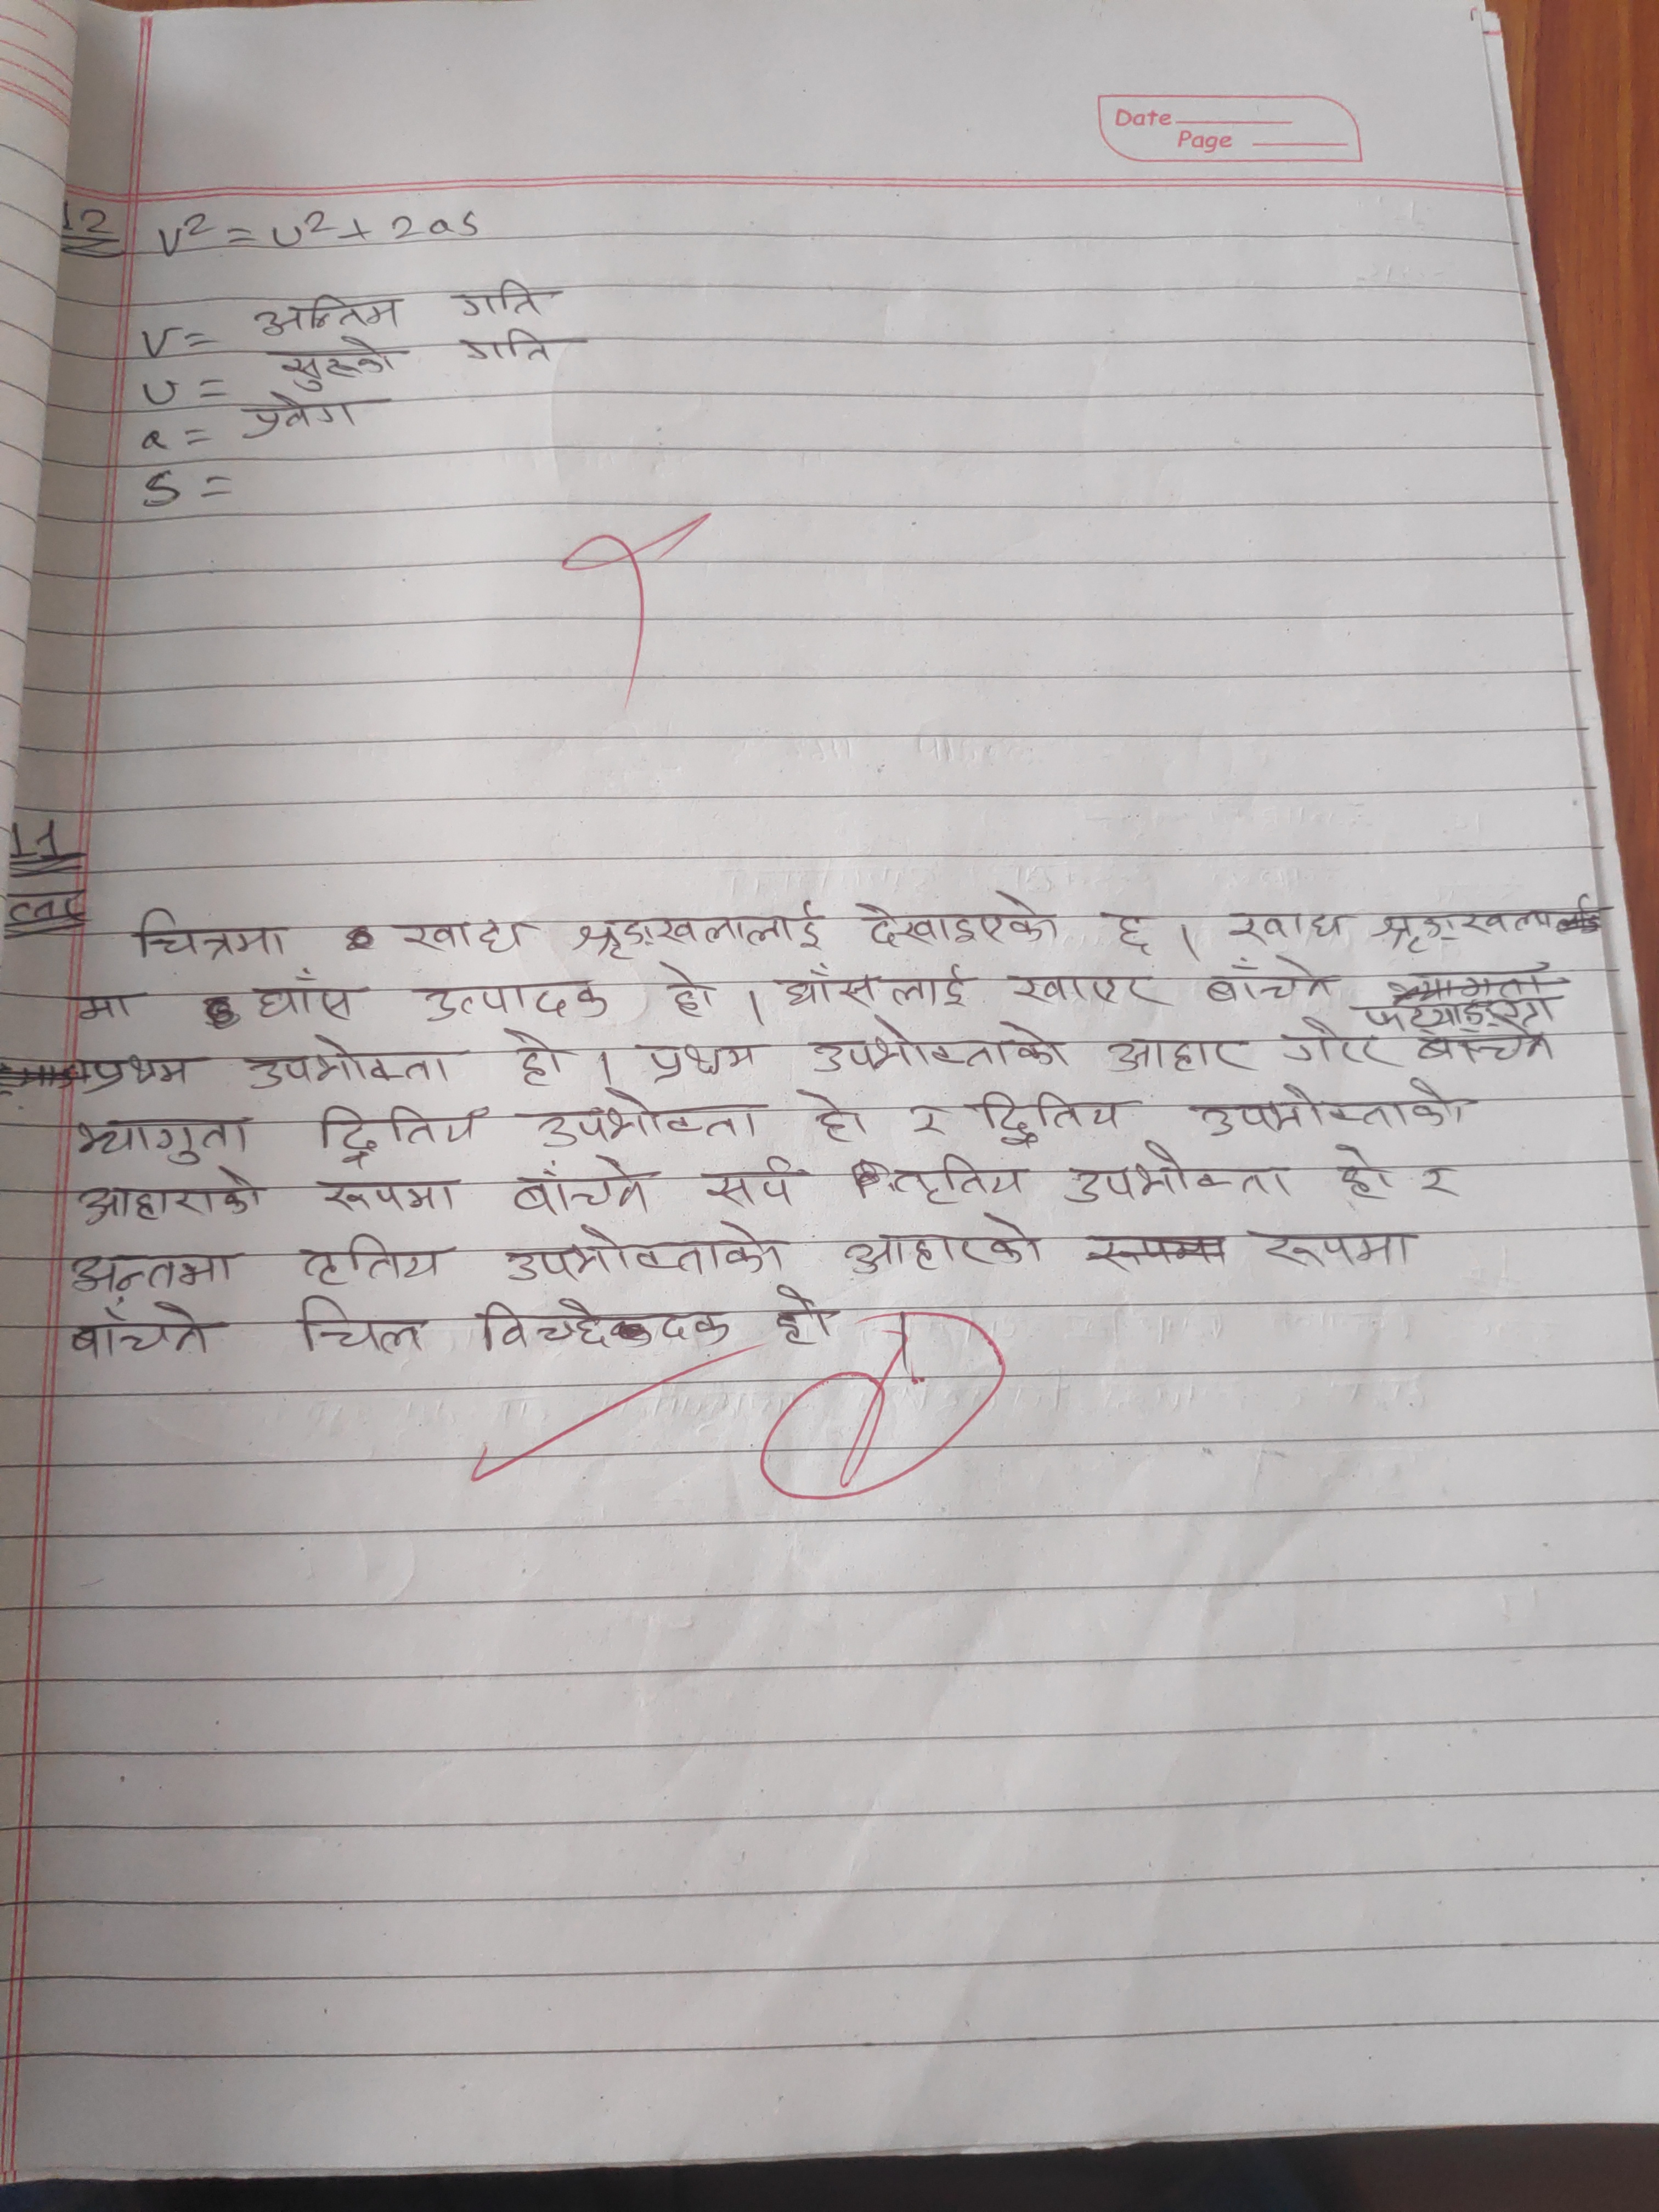 Date
Page
12 v² = u² + 2as
v = अन्तिम गति
u = सुरुको गति
a = प्रवेग
s =
11
चित्रमा खाद्य श्रृङ्खलालाई देखाइएको छ । खाद्य श्रृङ्खला
मा घाँस उत्पादक हो । घाँसलाई खाएर बाँच्ने
फट्याङ्ग्रा
प्रथम उपभोक्ता हो । प्रथम उपभोक्ताको आहार गरेर बाच्ने
भ्यागुता द्वितिय उपभोक्ता हो र द्वितिय उपभोक्ताको
आहाराको रूपमा बाँच्ने सर्प तृतिय उपभोक्ता हो र
अन्तमा तृतिय उपभोक्ताको आहारको रूपमा
बाँच्ने चिल विच्छेदक हो